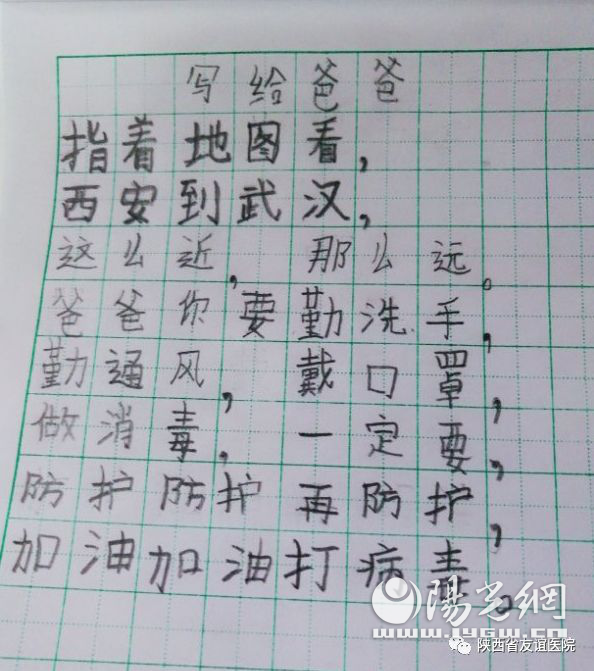 写给爸爸
指着地图看，
西安到武汉，
这么近，那么远。
爸爸你要勤洗手，
勤通风，戴口罩，
做消毒，一定要，
防护防护再防护，
加油加油打病毒。
陽光網
www.iygw.cn
陕西省友谊医院